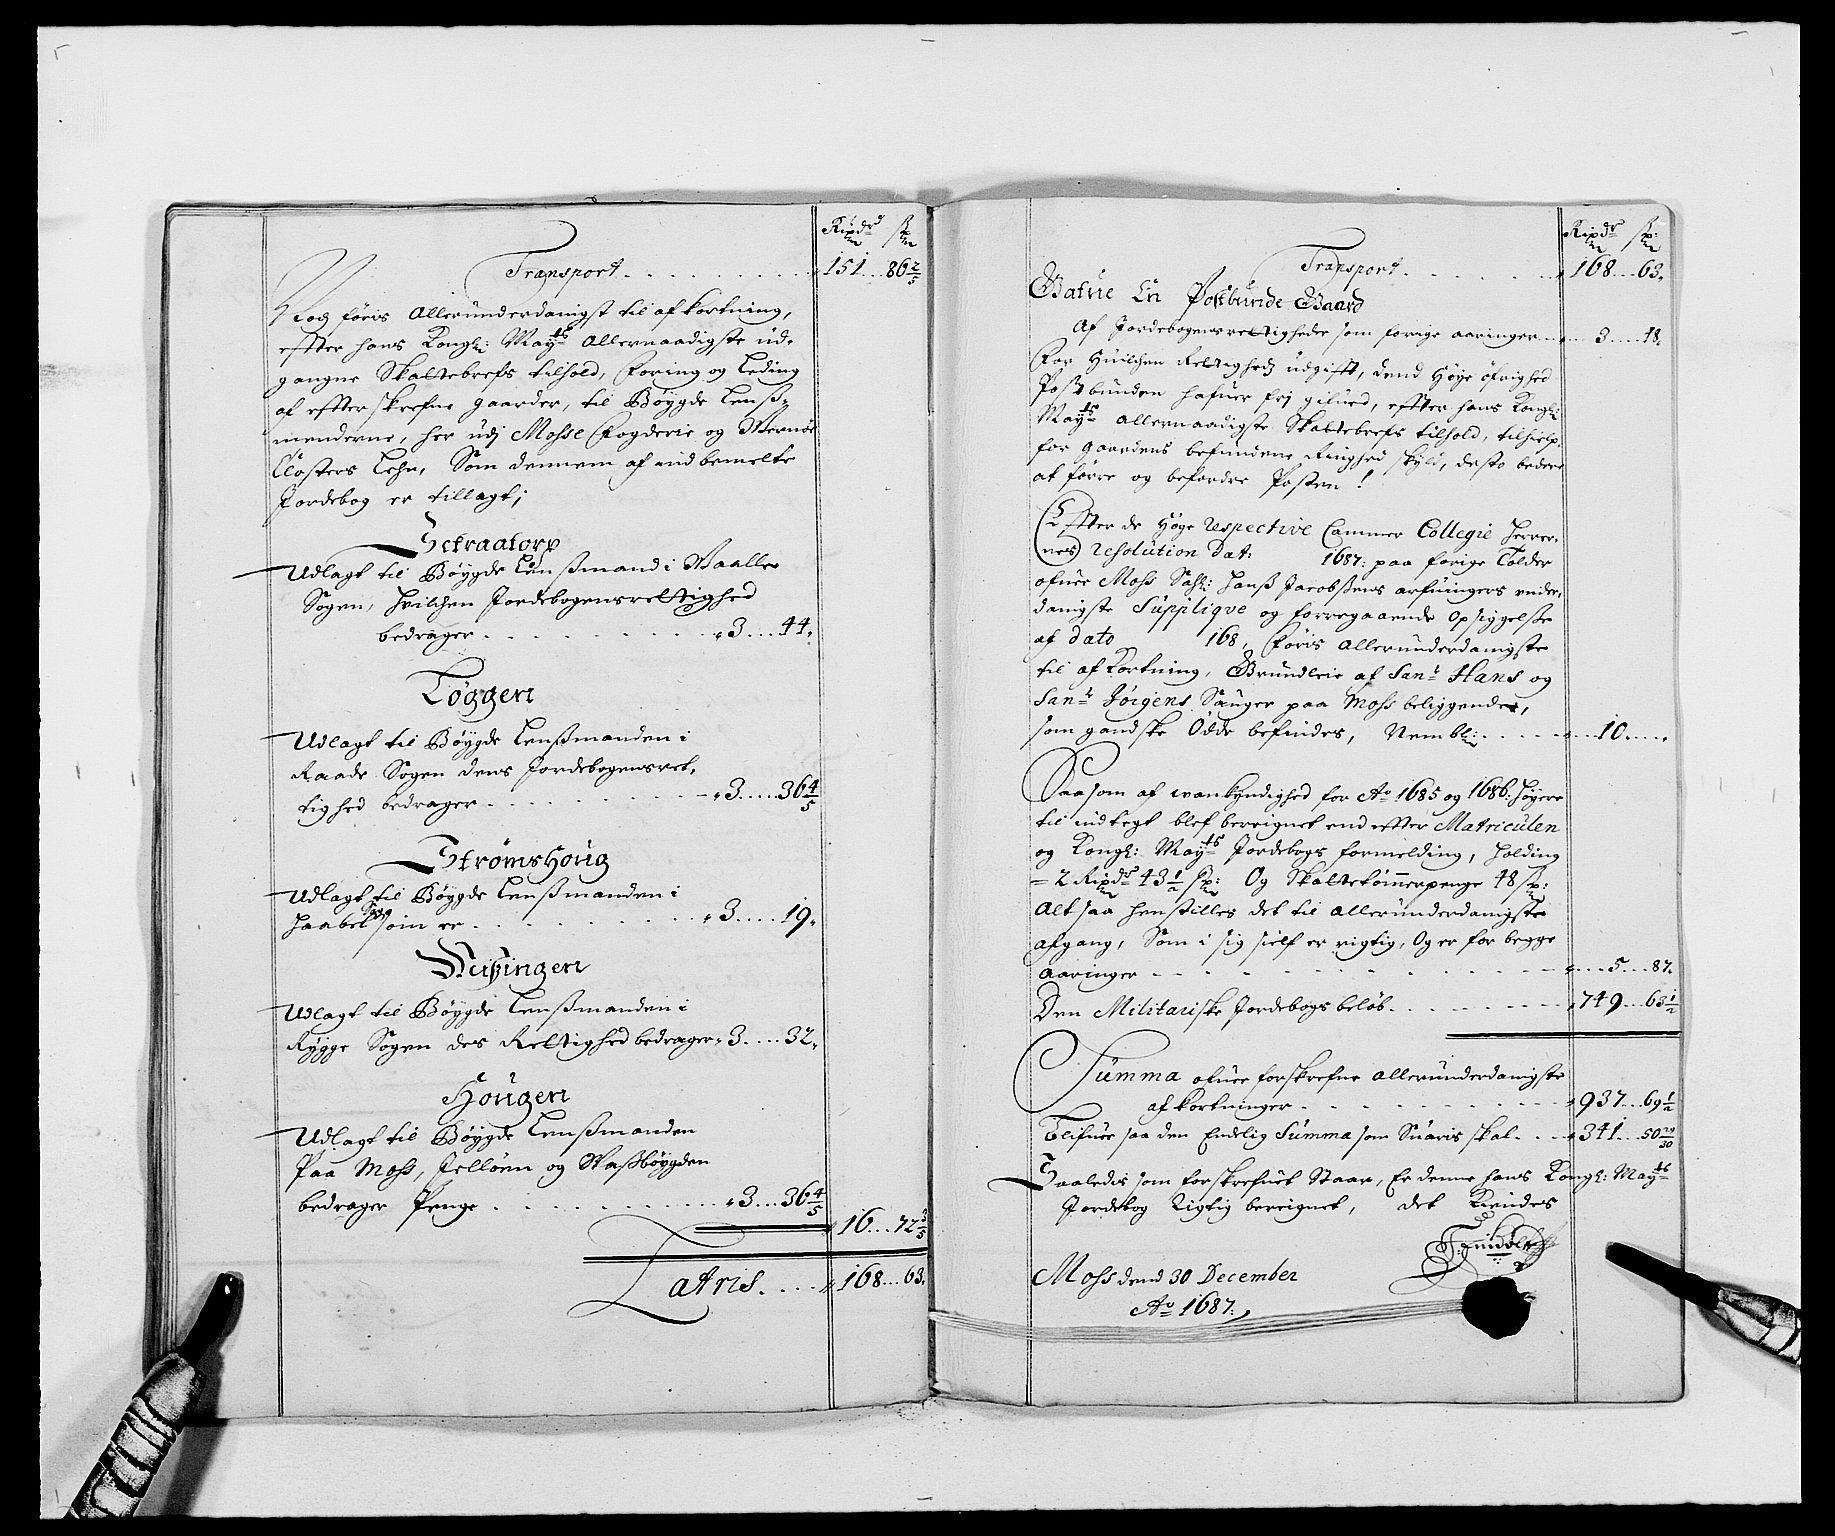 Rixdr sk
Transport . . . . . . . . 151 . . 86 2/5
Nog føris Allerunderdanigst til afkortning,
effter hans Kongl: Mayts Allernaadigste ud-
gangne Skattebrefs tilhold, Foring og Leding
af effterskrefne gaarder, til Bøygde Lenß-
menderne, her udj Mosse Fogderie og Wernøe
Closters Lehn, Som dennem af indbemelte
Jordebog er tillagt;
Udlagt til Bøygde Lenßmand i Waaller
Sogen, hvilchen Jordebogensrettighed
bedrager . . . . . . . . 3 . . . 44.
Løggen
Udlagt til Bøygde Lenßmanden i
Raade Sogen dens Jordebogensret-
tighed bedrager . . . . . . . . 3 . . . . 36 4/5
Strømshoug
Udlagt til Bøygde Lenßmanden i
Haabel Sogen som er . . . . . . . . 3 . . . . 19.
Udlagt til Bøygde Lenßmanden i
Rygge Sogen des Rettighed bedrager 3 . . . . 32.
Hougen
Udlagt til Bøygde Lenßmanden
Paa Moss, Jelløen og Waßbøygden
bedrager Penge . . . . . . . . 3 . . . 36 4/5
16 . . . 72 3/5
Latris . . . . 168 . . . 63.
Rixdr sk:
Transport . . . . . . 168 . . . 63.
Gatue En Postbunde Gaard
Af Jordebogensrettigheder som forige aaringer . . . 3 . . . 18.
For huilchen Rettigheds udgifft, dend Høye øfrighed
Postbunden hafuer frj gifued, effter hans Kongl:
Mayts allernaadigste Skattebrefs tilhold, tilhielp
for gaardens befundene Ringhed skyld, desto bedere
at førre og befordre Posten!
Effter de Høge respective Cammer Collegie Herrer-
nes resolution dat: 1687: paa forige Tolder
ofuer Moss Sahl: Hanß Jacobßens arfuingers under-
danigste Suppliqve og forregaaende opsiggelße
af dato 168, føris allerunderdanigste
til afkortning, Grundleie af Sanr Hans og
Sanr Jørgens Sauger paa Moss beliggendes,
som gandske Øde befindes, Nembl: . . . . . 10 . . . .
Saasom af wankyndighed for Ao 1685 og 1686: høyere
til indtegt blef bereignet end effter Matriculen
og Kongl: Mayts Jordebogs formelding, holding
- 2 Rixdr 43 1/2 sk: Og Skattetømmerpenge 48 sk:
Alt saa henstilles det til allerunderdanigste
afgang, Som i sig sielf er rigtig, Og er for begge
aaringer . . . . . . . . 5 . . . 87.
Den Militariske Jordebogs beløb . . . . . . . 749 . . . 63 1/2
Summa ofuer forskrefne allerunderdanigste
afkortninger . . . . . . . . 937 . . . 69 1/2
Blifuer saa den Endelig Summa som Suaris skal . . . 341 . . . 50 29/30
Saaledis som forskrefuet Staar, Er denne hans Kongl: Mayts
Jordebog Rigtig bereignet, det Kiendes
Moss dend 30 December
Ao 1687.